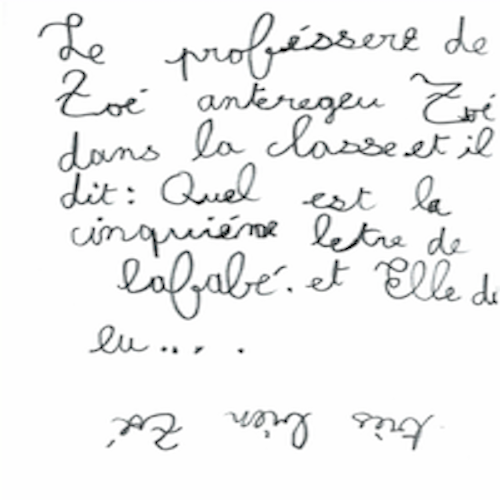 Le proféssere de
Zoé anteregeu Zoé
dans la classe et il
dit : Quel est la
cinquiéme letre de
lafabé. et Elle di
eu....
très bien Zoé